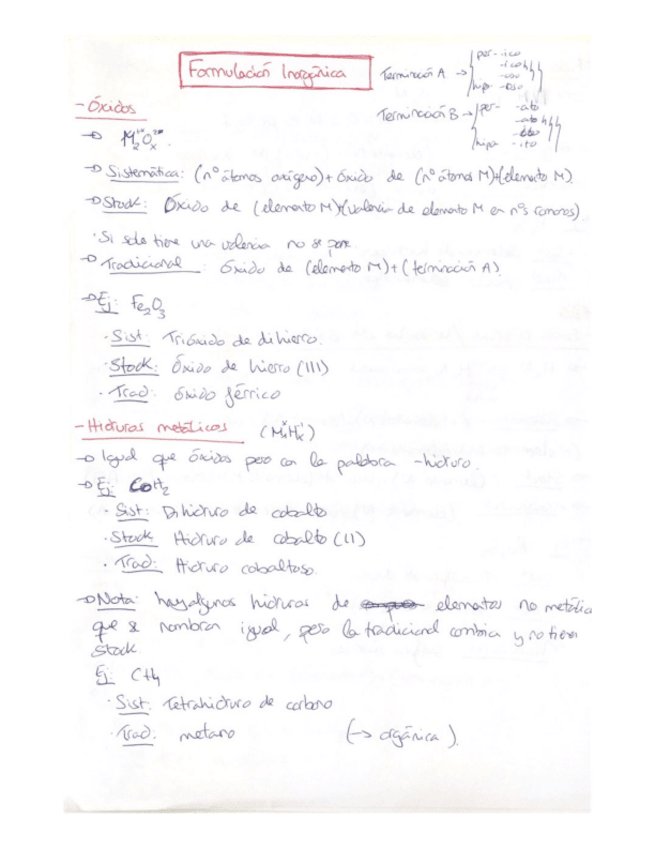 Formulación Inorgánica
Terminación A → per- -ico
-ico
-oso
hipo- -oso
Terminación B → per- -ato
-ato
-ito
hipo- -ito
- Óxidos
→ M₂⁺ˣOₓ²⁻.
→ Sistemática: (nº átomos oxígeno)+ óxido de (nº átomos M)+(elemento M).
→ Stock: Óxido de (elemento M)+(valencia de elemento M en nºs romanos).
· Si solo tiene una valencia no se pone.
→ Tradicional: óxido de (elemento M)+(terminación A)
→ Ej: Fe₂O₃
· Sist: Trióxido de dihierro.
· Stock: Óxido de hierro (III)
· Trad: óxido férrico
- Hidruros metálicos (M₁ˣHₓ⁻¹)
→ Igual que óxidos pero con la palabra -hidruro.
→ Ej: CoH₂
· Sist: Dihidruro de cobalto
· Stock: Hidruro de cobalto (II)
· Trad: Hidruro cobaltoso.
→ Nota: hay algunos hidruros de elementos no metálic
que se nombran igual, pero la tradicional cambia y no tienen
Stock.
Ej: CH₄
· Sist: Tetrahidruro de carbono
· Trad: metano (→ orgánica).